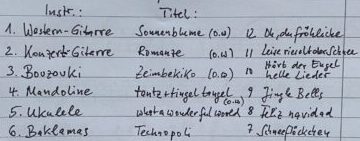 Instr.: Titel:
1. Western-Gitarre Sonnenblume (o.w) 12 Oh, du fröhliche
2. Konzert-Gitarre Romanze (o.w) 11 Leise rieselt der Schnee
3. Bouzouki Zeimbekiko (o.w) 10 Hört der Engel helle Lieder
4. Mandoline tantz+tingel tangel (o.w) 9 Jingle Bells
5. Ukulele what a wonderful world 8 Feliz navidad
6. Baklamas Technopoli 7 Schneeflöckchen